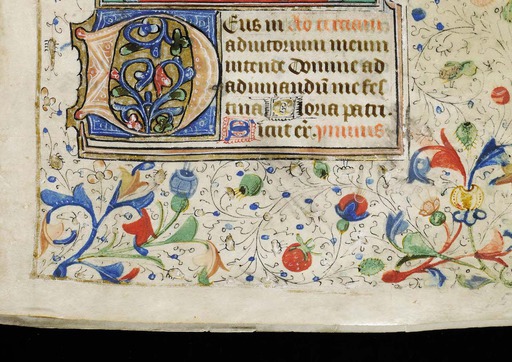 Deus in
adiutorium meum
intende Domine ad
adiuuandū me fes
tina Gloria patri.
Sicut er. ymnus